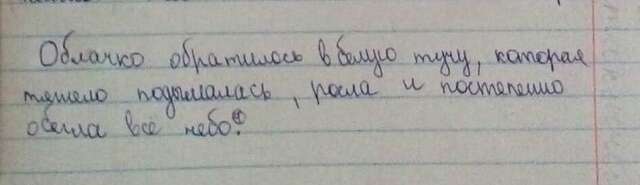 Облачко обратилось в белую тучу, которая
тяжело подымалась, росла и постепенно
обегла все небо.